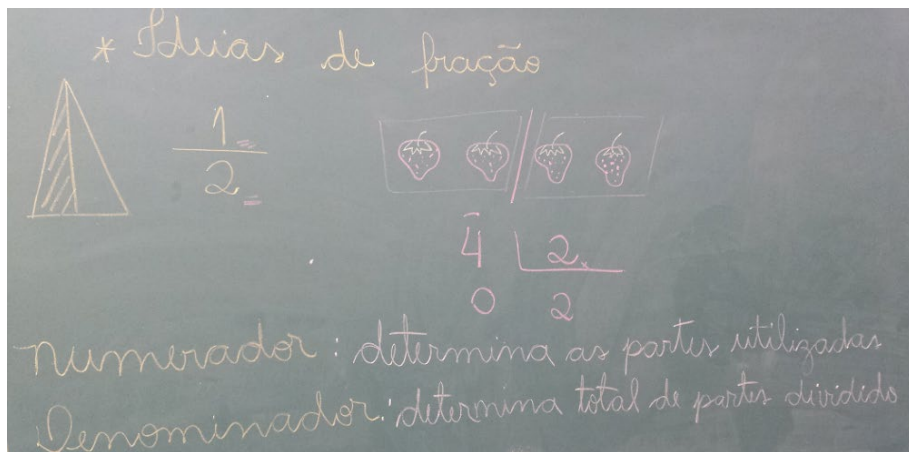 * Iduias de fração
1
2
4 2
0 2
numerador: determina as partes utilizadas
Denominador: determina total de partes dividido